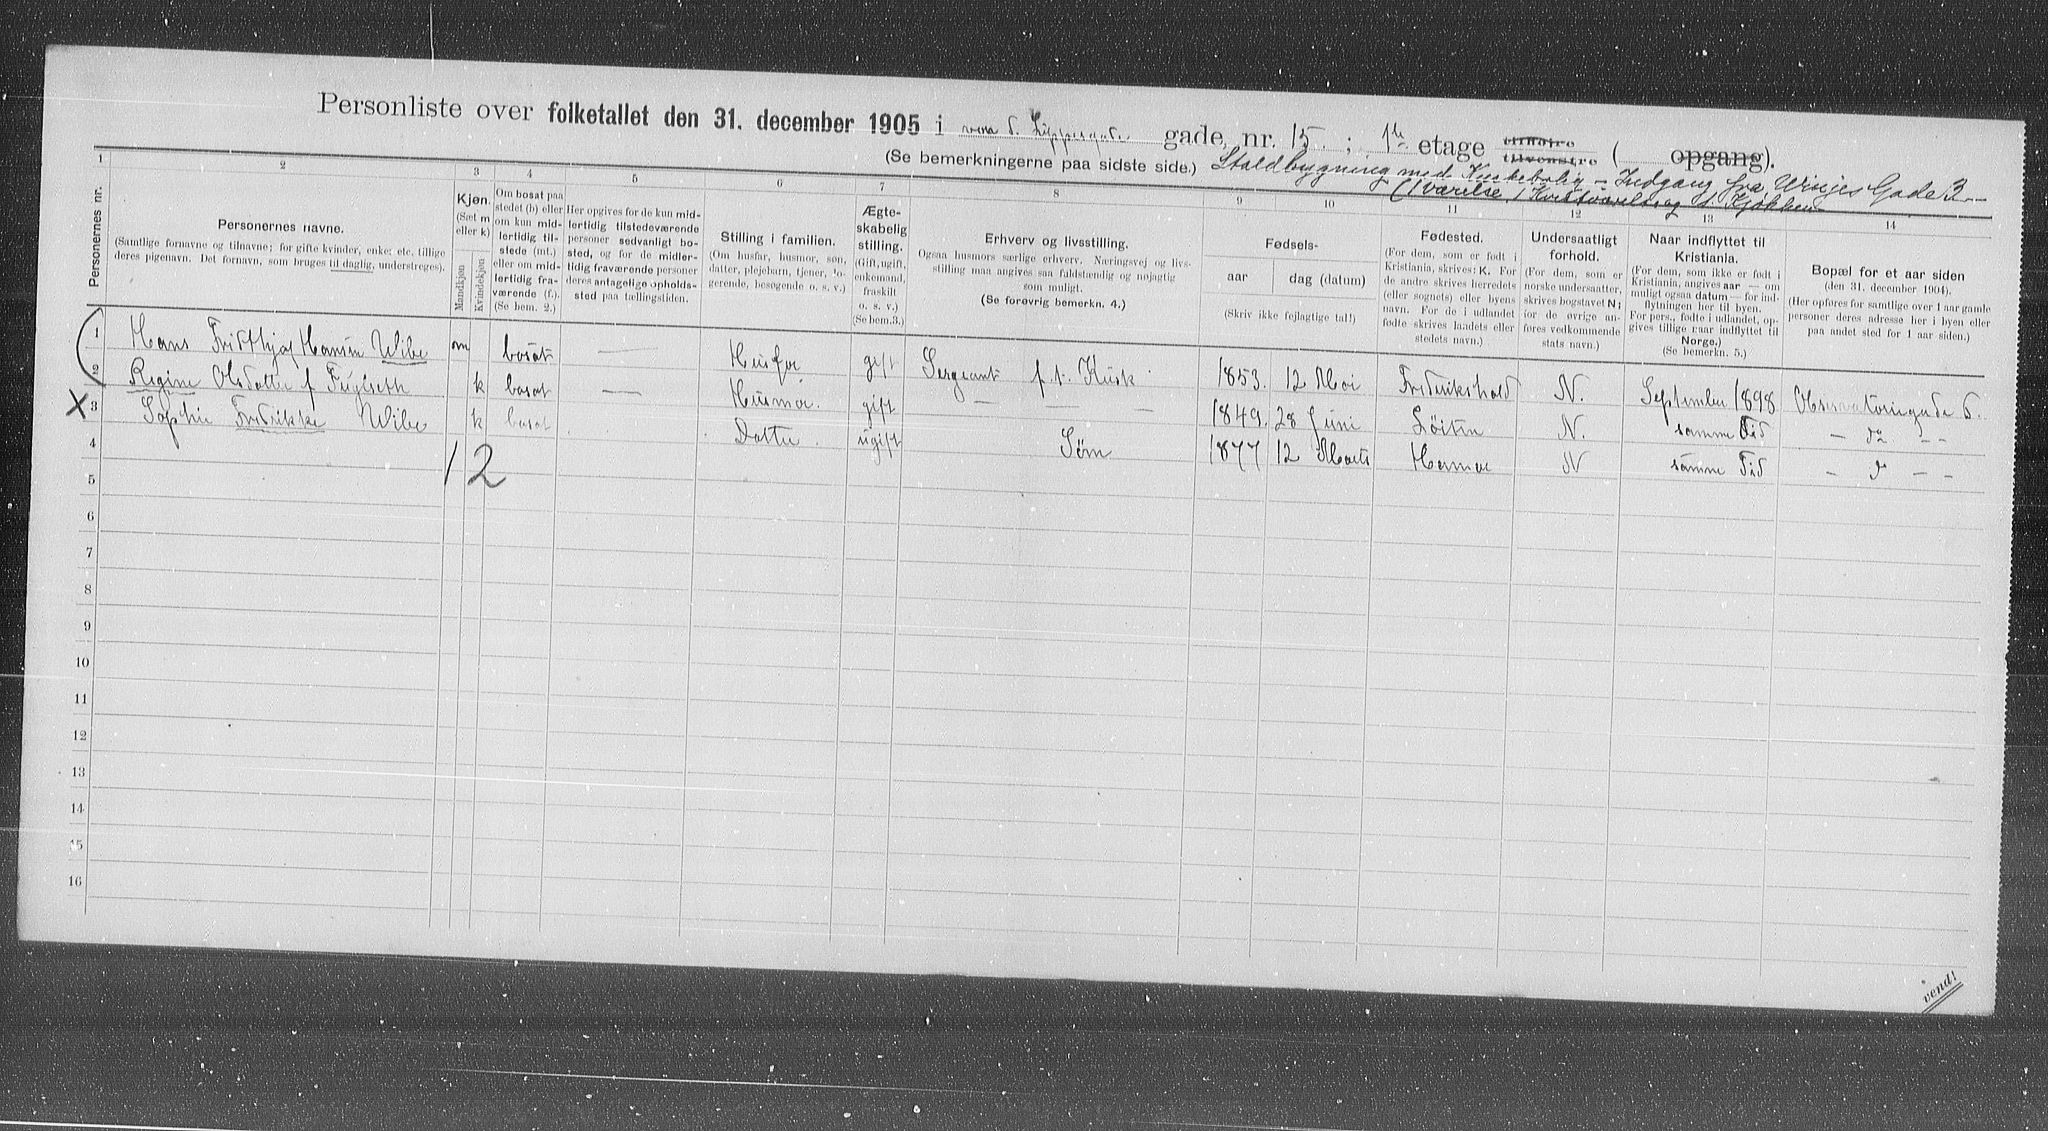 Personliste over folketallet den 31. december 1905 i gade, nr. 15. ; 1ste etage tilhøire tilvenstre ( opgang).
(Se bemerkningerne paa sidste side.) Staldbygning med Kuskebolig – Indgang fra Winjes Gade 3.
(1 værelse, 1 Kvistværelse og 1 Kjøkken
1 2 3 4 5 6 7 8 9 10 11 12 13 14
Personernes nr.
Personernes navne.
(Samtlige fornavne og tilnavne; for gifte kvinder, enker etc. tillige
deres pigenavn. Det fornavn, som bruges til daglig, understreges).
Kjøn.
(Sæt m
eller k)
Mandkjøn
Kvindekjøn
Om bosat paa
stedet (b) eller
om kun mid-
lertidig til-
stede (mt.)
eller om mid-
lertidig fra-
værende (f.).
(Se bem. 2.)
Her opgives for de kun mid-
lertidig tilstedeværende
personer sedvanlig bo-
sted, og for de midler-
tidig fraværende personer
deres antagelige opholds-
sted paa tællingstiden.
Stilling i familien.
(Om husfar, husmor, søn,
datter, plejebarn, tjener, lo-
gerende, besøgende o. s. v.)
Ægte-
skabelig
stilling.
(Gift, ugift,
enkemand,
fraskilt
o. s. v.)
(Se bem. 3.)
Erhverv og livsstilling.
Ogsaa husmors særlige erhverv. Næringsvej og livs-
stilling maa angives saa fuldstændig og nøjagtig
som muligt.
(Se forøvrig bemerkn. 4.)
Fødsels-
aar
dag (datum)
(Skriv ikke fejlagtige tal!)
Fødested.
(For dem, som er født i
Kristiania, skrives: K. For
de andre skrives herredets
(eller sognets) eller byens
navn. For de i udlandet
fødte skrives landets eller
stedets navn.)
Undersaatligt
forhold.
(For dem, som er
norske undersaatter,
skrives bogstavet N;
for de øvrige an-
føres vedkommende
stats navn.)
Naar indflyttet til
Kristiania.
(For dem, som ikke er født i
Kristiania, angives aar — om
muligt ogsaa datum — for ind-
flytningen her til byen.
For pers., fødte i udlandet, op-
gives tillige naar indflyttet til
Norge.)
(Se bemerkn. 5.)
Bopæl for et aar siden
(den 31. december 1904).
(Her opføres for samtlige over 1 aar gamle
personer deres adresse her i byen eller
paa andet sted for 1 aar siden.)
1 Hans Fridthjof Hansen Wibe m bosat — Husfar gift Sergeant p. t. Kusk. 1853. 12 Mai Fredrikshald N. September 1898 Observatoriegade 5.
2 Regine Olsdatter f Fuglseth k bosat — Husmor. gift — — — 1849. 28 Juni Løiten N. samme Tid — do — —
X 3 Sophie Fredrikke Wibe k bosat Datter. ugift Søm 1877 12 Marts Hamar N samme Tid — do — —
4
12
5
6
7
8
9
10
11
12
13
14
15
16
vend!